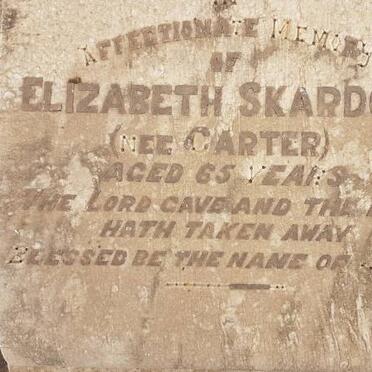 AFFECTIONATE MEMORY
OF
ELIZABETH SKARDO
(NEE CARTER)
AGED 65 YEARS
THE LORD GAVE AND THE
HATH TAKEN AWAY
BLESSED BE THE NAME OF